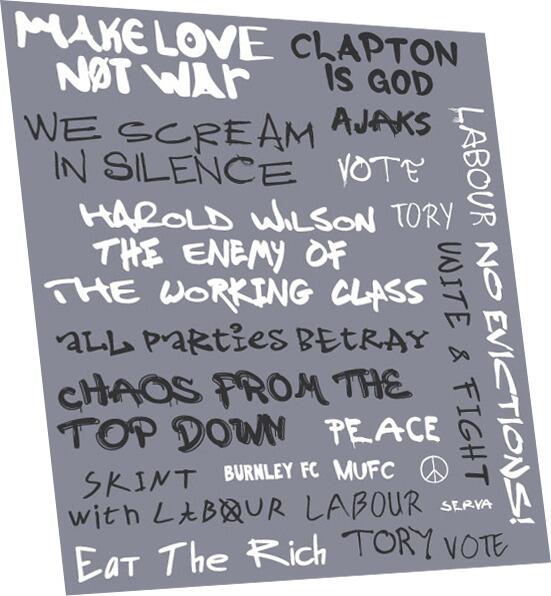 MAKE LOVE
NØT WAr
CLAPTON
IS GOD
AJAKS
WE SCREAM
IN SILENCE
VOTE
TORY
LABOUR
HAROLD WILSON
THE ENEMY OF
THE WORKING CLASS
UNITE & FIGHT
NO EVICTIONS!
aLL Parties BETRAY
cHAOS FROM THE
TOP DOWN
PEACE
SKINT
with LABOUR
BURNLEY FC
MUFC
LABOUR
SERVA
Eat The Rich
TORY VOTE